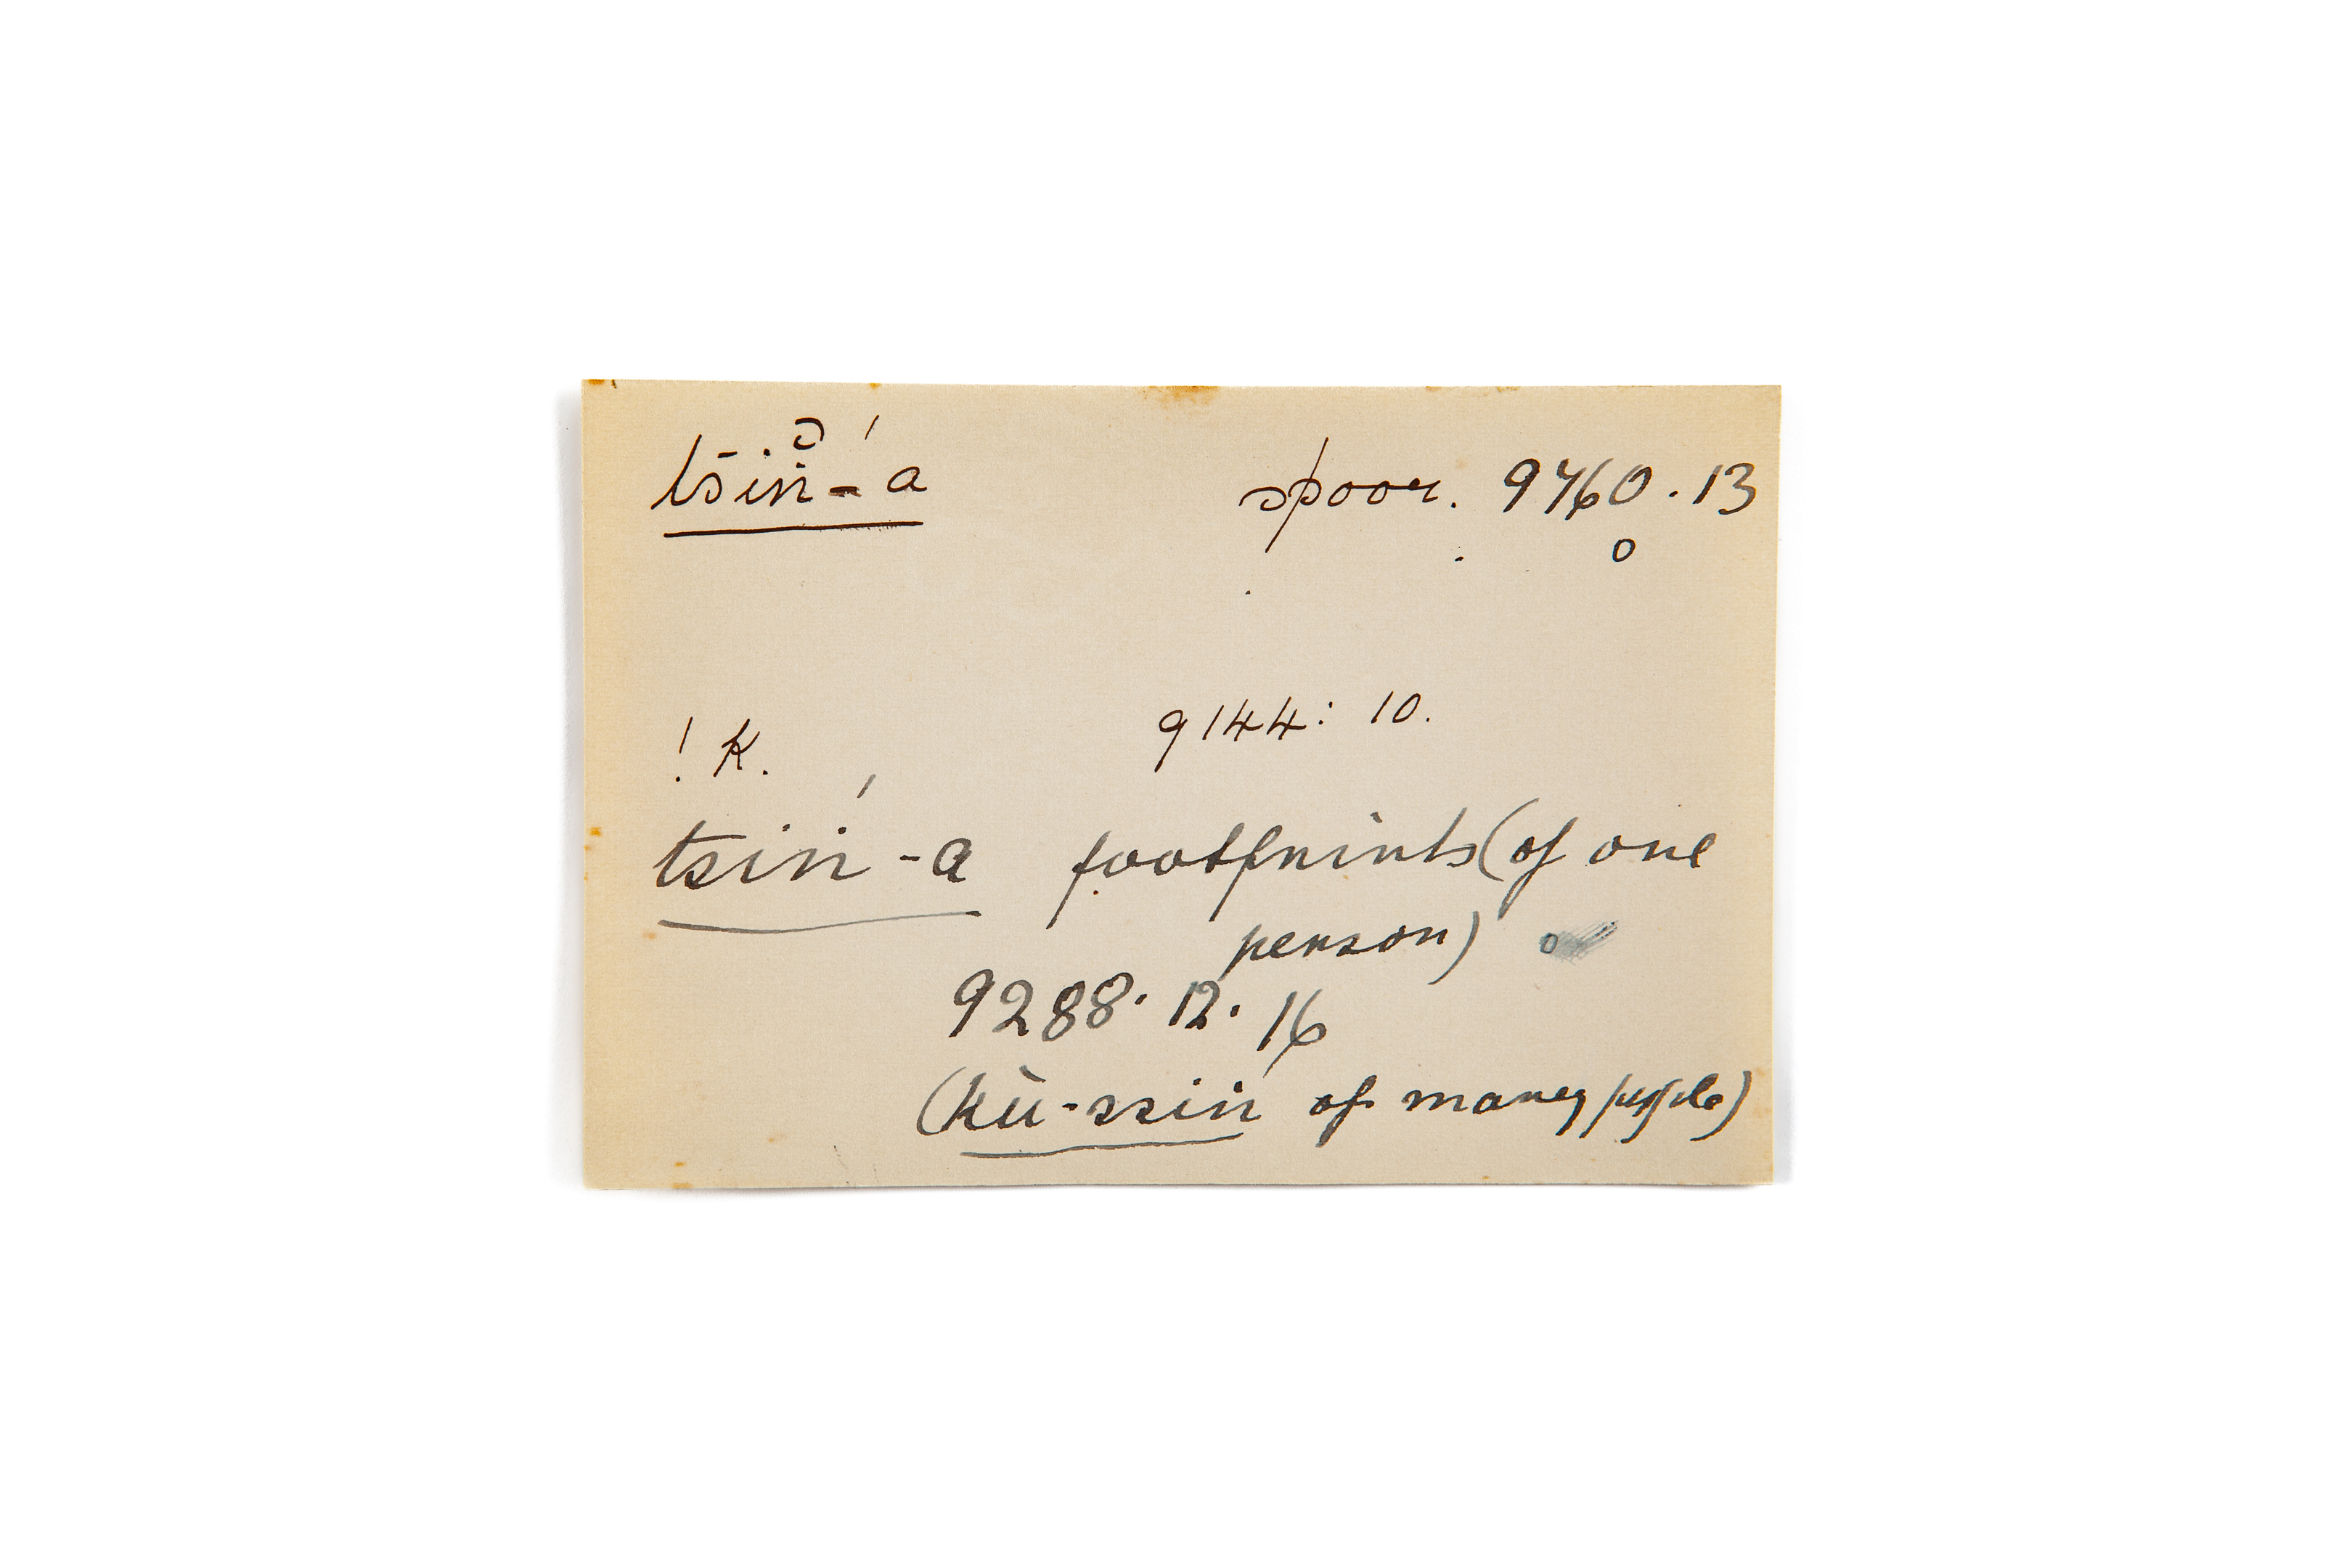 tsiṅ̆-á spoor. 9760.13
o
9144: 10.
! K.
tsiṅ-á footprints (of one
person) o
9288. 12. 16
(kù-ssiṅ of many people)